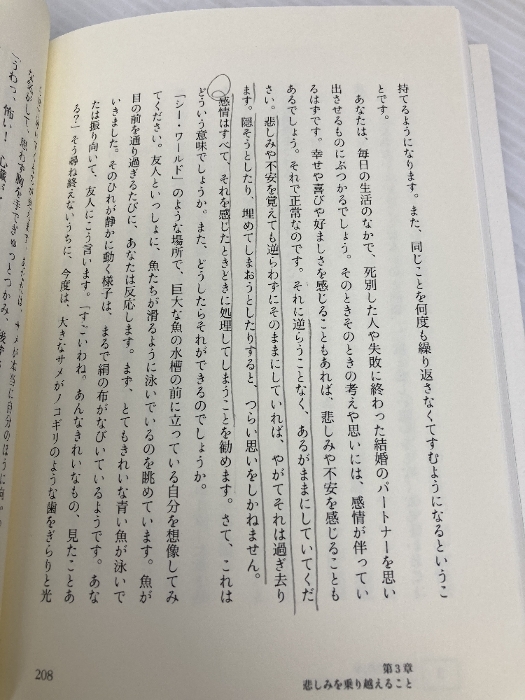 持てるようになります。また、同じことを何度も繰り返さなくてすむようになるというこ
とです。
あなたは、毎日の生活のなかで、死別した人や失敗に終わった結婚のパートナーを思い
出させるものにぶつかるでしょう。そのときそのときの考えや思いには、感情が伴ってい
るはずです。幸せや喜びや好ましさを感じることもあれば、悲しみや不安を感じることも
あるでしょう。それで正常なのです。それに逆らうことなく、あるがままにしていてくだ
さい。悲しみや不安を覚えても逆らわずにそのままにしていれば、やがてそれは過ぎ去り
ます。隠そうとしたり、埋めてしまおうとしたりすると、つらい思いをしかねません。
感情はすべて、それを感じたときどきに処理してしまうことを勧めます。さて、これは
どういう意味でしょうか。また、どうしたらそれができるのでしょうか。
「シー・ワールド」のような場所で、巨大な魚の水槽の前に立っている自分を想像してみ
てください。友人といっしょに、魚たちが滑るように泳いでいるのを眺めています。魚が
目の前を通り過ぎるたびに、あなたは反応します。まず、とてもきれいな青い魚が泳いで
いきました。そのひれが静かに動く様子は、まるで絹の布がなびいているようです。あな
たは振り向いて、友人にこう言います。「すごいわね。あんなきれいなもの、見たことあ
る？」そう尋ね終えないうちに、今度は、大きなサメがノコギリのような歯をぎらりと光
「うわっ、怖い！
第3章
悲しみを乗り越えること
208